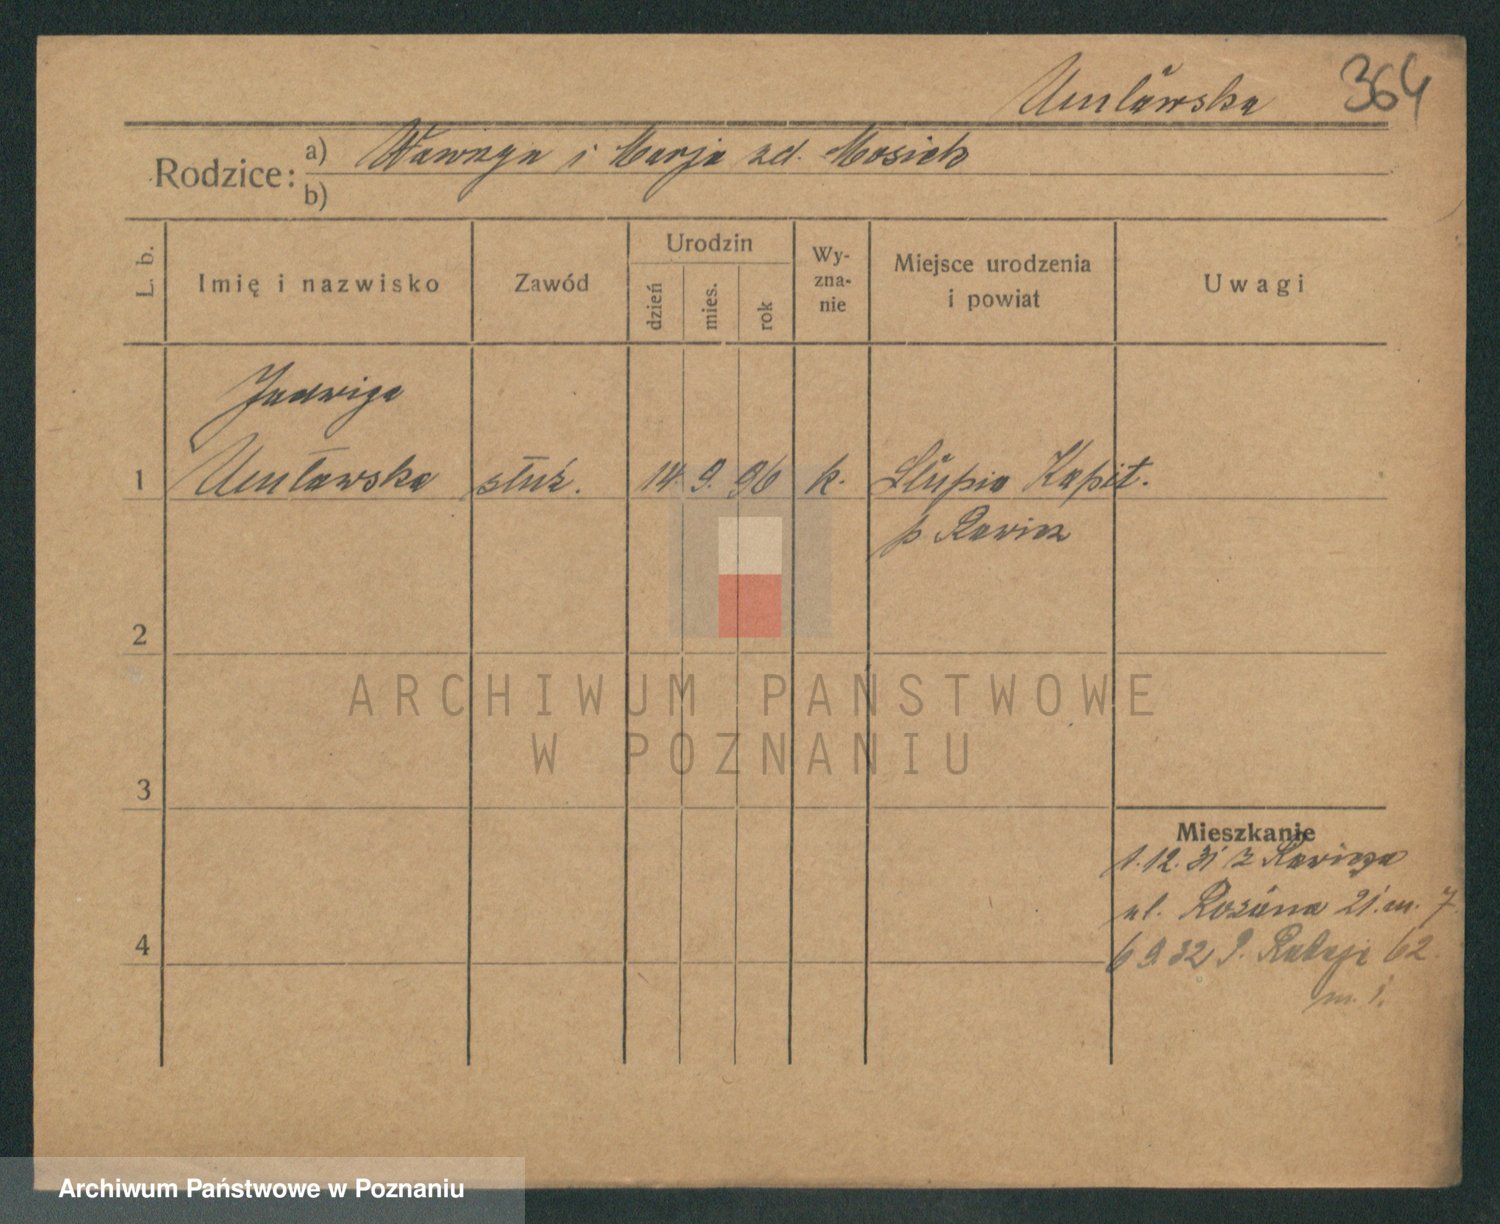 Umławska 364
Rodzice: a) Wawrzyn i Marja zd. Mosiek
b)
L. b. Imię i nazwisko Zawód Urodzin dzień mies. rok Wy-zna-nie Miejsce urodzenia i powiat Uwagi
Jadwiga
1 Umławska służ. 14. 9. 96 k. Słupia Kapit.
p Rawicz
2
3
4
Mieszkanie
1.12.31 z Rawicza
ul. Różana 21 m. 7
6 9 32 P. Rataje 62.
m. 1.
ARCHIWUM PAŃSTWOWE
W POZNANIU
Archiwum Państwowe w Poznaniu